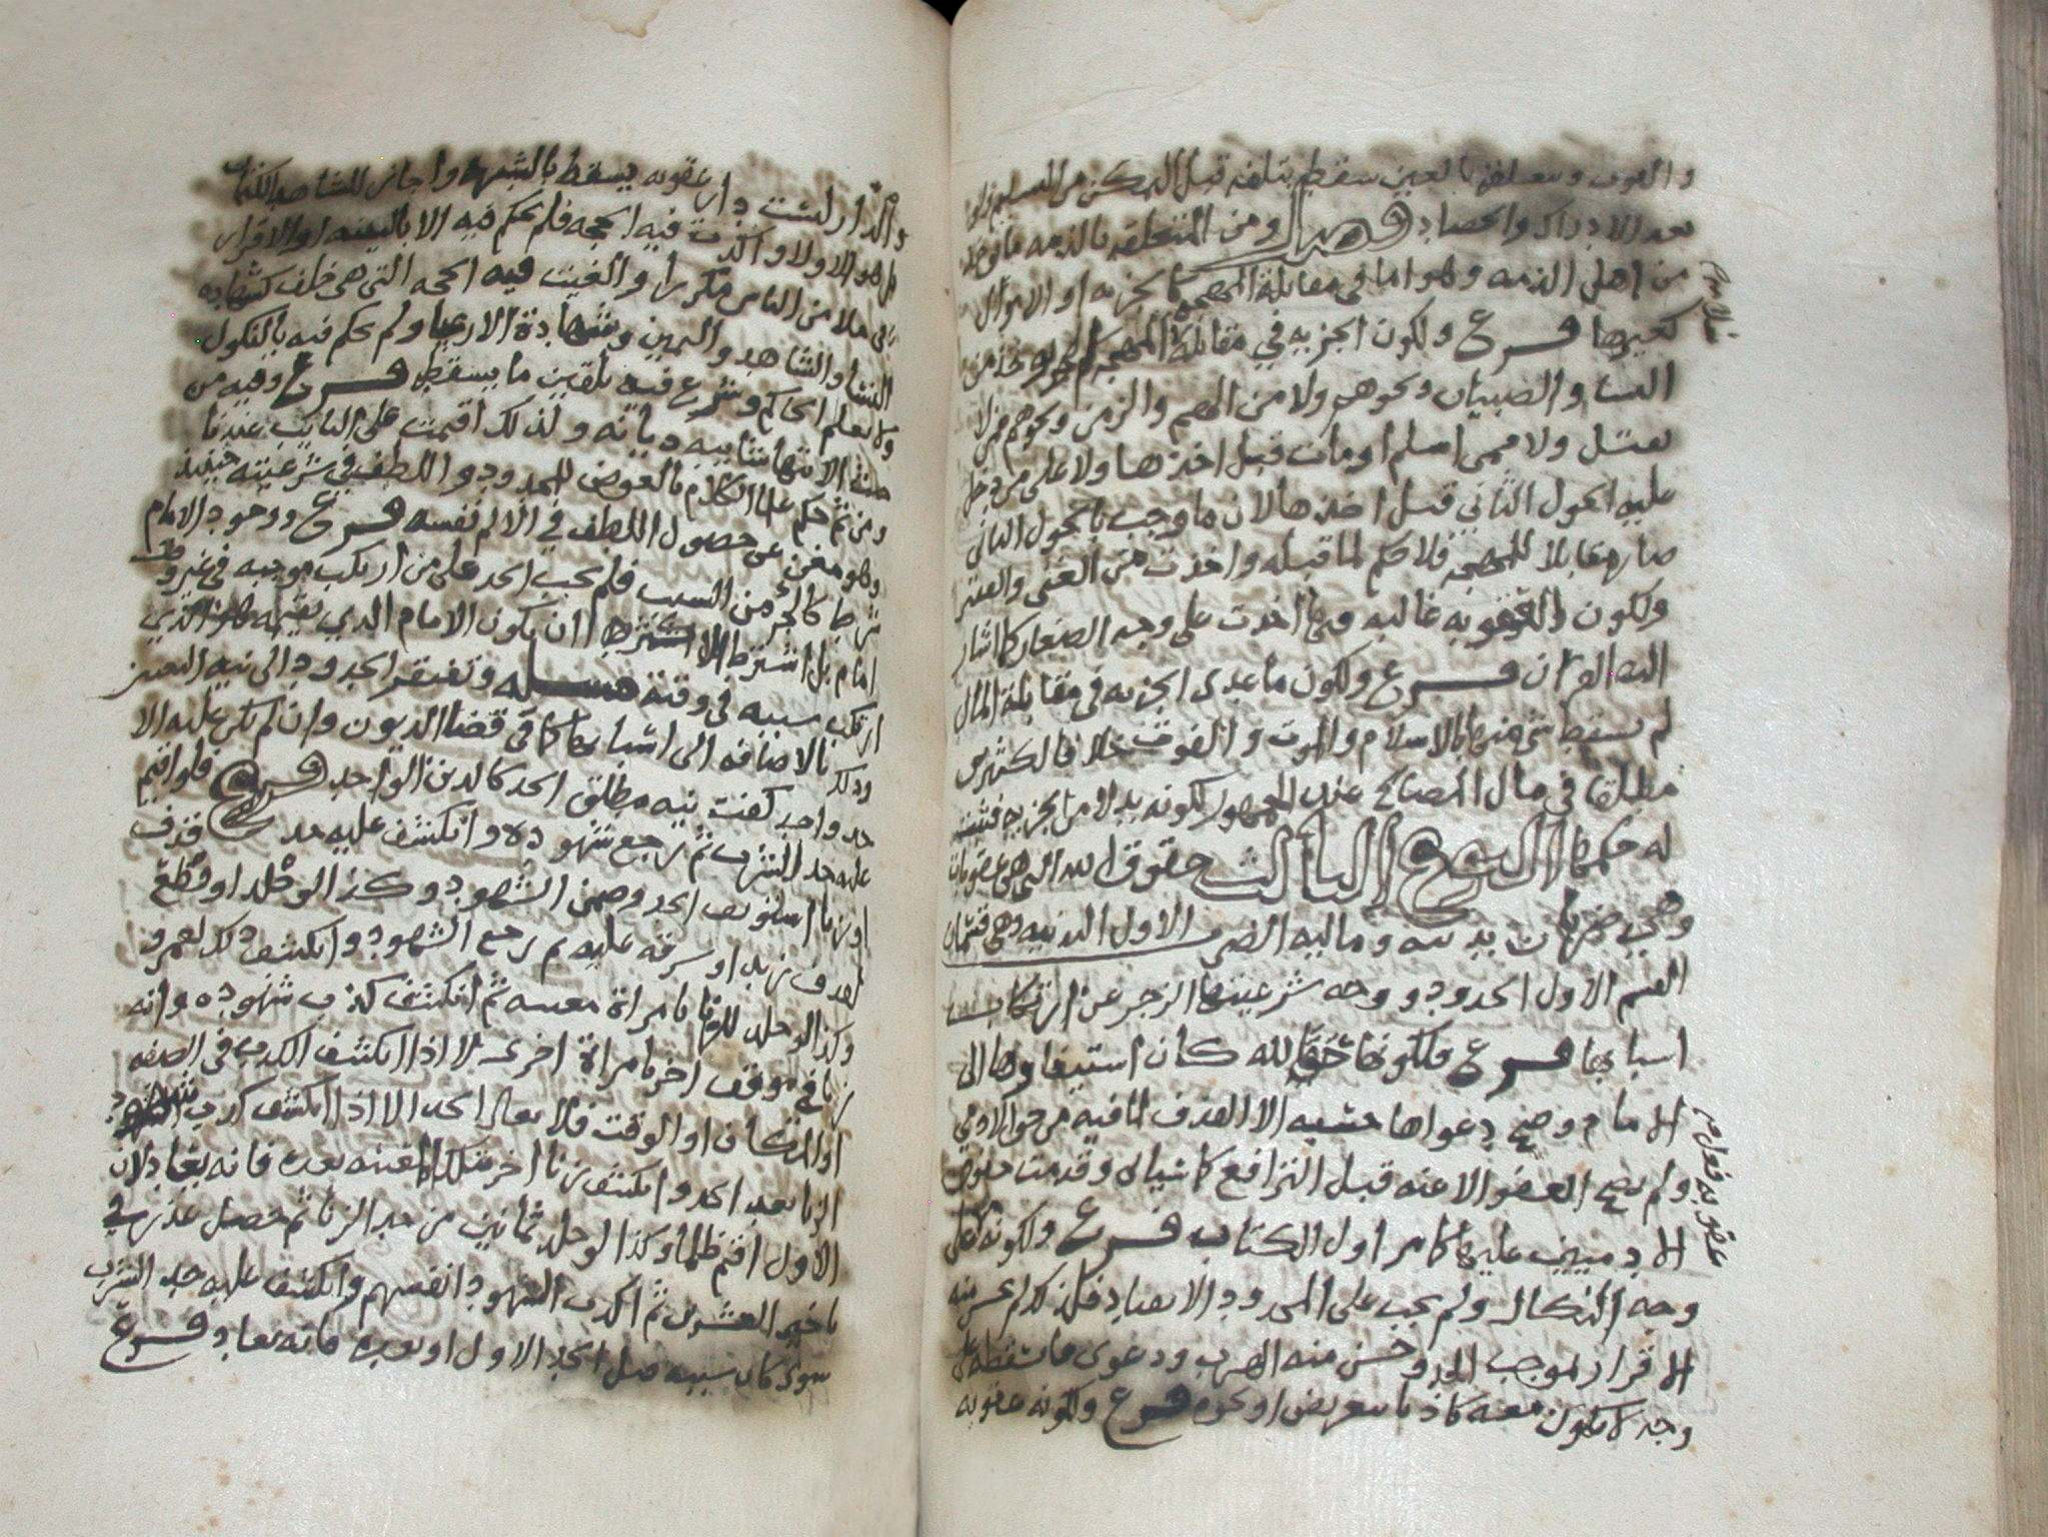 والفوت ومتعلقة بالعين سقط بتلفه قبل التمكن من التسليم
بعد الادراك والحصاد فصل ومن المتعلقه بالذمه ما يوخذ
من اهل الذمه وهو اما في مقابلة المهجه كالجزيه او الاموال
كغيرها فرع ولكون الجزيه في مقابلة المهجه لم توخذ من
النسا والصبيان ونحوهم ولا من الهم والزمن ونحوهم ممن لا
يقتل ولا ممن اسلم او مات قبل اخذها ولا على من دخل
عليه الحول الثاني قبل اخذها لان ما وجب بالحول الثاني
صار مقابلا للمهجه فلا حكم لما قبله واخذت من الغني والفقير
ولكون العقوبه غالبه فيها اخذت على وجه الصغار كما اشار
اليه القران فرع ولكون ما عدى الجزيه في مقابلة المال
لم يسقط شي منها بالاسلام والموت والفوت خلافا لكثير
مطلقا في مال الصالح عند الجمهور لكونه بدلا من الجزيه فثبت
له حكمها النوع الثالث حقوق الله التي هي عقوبات
وهي ضربان بدنيه وماليه الضرب الاول البدنيه وهي قسمان
القسم الاول الحدود ووجه شرعيتها الزجر عن ارتكاب
اسبابها فرع فلكونها حقا لله كان استيفاوها الى
الامام وصح دعواها حسبه الا القذف لما فيه من حق الادمي
ولم يصح العفو الا عنه قبل الترافع كما سياتي وقدمت حقوق
الادميين عليها كما مر اول الكتاب فرع ولكونها على
وجه النكال ولم يجب على المحدود الانقياد فلذلك لم
الاقرار لموجب الحد وحسن منه الهرب ودعوى ما يسقطه على
وجه لا يكون معه كاذبا بتعريض او نحوه فرع ولكونه عقوبه
عقوبه فعل
والدار ليست دار عقوبه يسقط بالشبهه واجاز للشاهد الكتمان
بل هو الاولى واكدت فيه الحجه فلم يحكم فيه الا بالبينه او الاقرار
في ملا من الناس مكررا والغيت فيه الحجه التي هي خلف كشهاده
النسا والشاهد واليمين وشهادة الارعيا ولم يحكم فيه بالنكول
ولا بعلم الحاكم وشرع فيه تلقين ما يسقطه فرع وفيه من
جهة الانتها شايبه ديانه ولذلك اقيمت على التايب عندنا
ومن ثم حكم علما الكلام بالعوض للمحدود واللطف في شرعيته حينيذ
وهو مغن عن حصول اللطف في الالم نفسه فرع ووجود الامام
شرطا كالجز من السبب فلم يجب الحد على من ارتكب موجبه في غير وقت
امام بل اشترط الا ان يكون الامام الذي يقيمه هو الذي
ارتكب سببه في وقته مسله وتفتقر الحدود الى نيه التعيين
وذلك بالاضافه الى اسبابها كما في قضا الديون وان لم يكن عليه الا
حد واحد كفت نيه مطلق الحد كالدين الواحد فرع فلو اقيم
عليه حد الشرب ثم رجع شهوده وانكشف عليه حد قذف
او زنا استونف الحد وضمن الشهود وكذا لو جلد او قطع
لقذف زيد او سرقه عليه ثم رجع الشهود وانكشف ذلك لعمرو
وكذا لو جلد للزنا بامراة معينه ثم انكشف كذب شهوده وانه
زنا في موقف اخر بامراة اخرى لا اذا انكشف الكذب في الصفه
او المكان او الوقت فلا يعاد الحد الا اذا انكشف كذب شهود
الزنا بعد الحد وانكشف زنا اخر بتلك المعينه بعده فانه يعاد لان
الاول اقيم ظلما وكذا لو جلد ثمانين من حد الزنا ثم حصل عذر في
تاخير العشرين ثم اكذب الشهود انفسهم وانكشف عليه حد الشرب
سوى كان سببه قبل الحد الاول او بعده فانه يعاد فرع